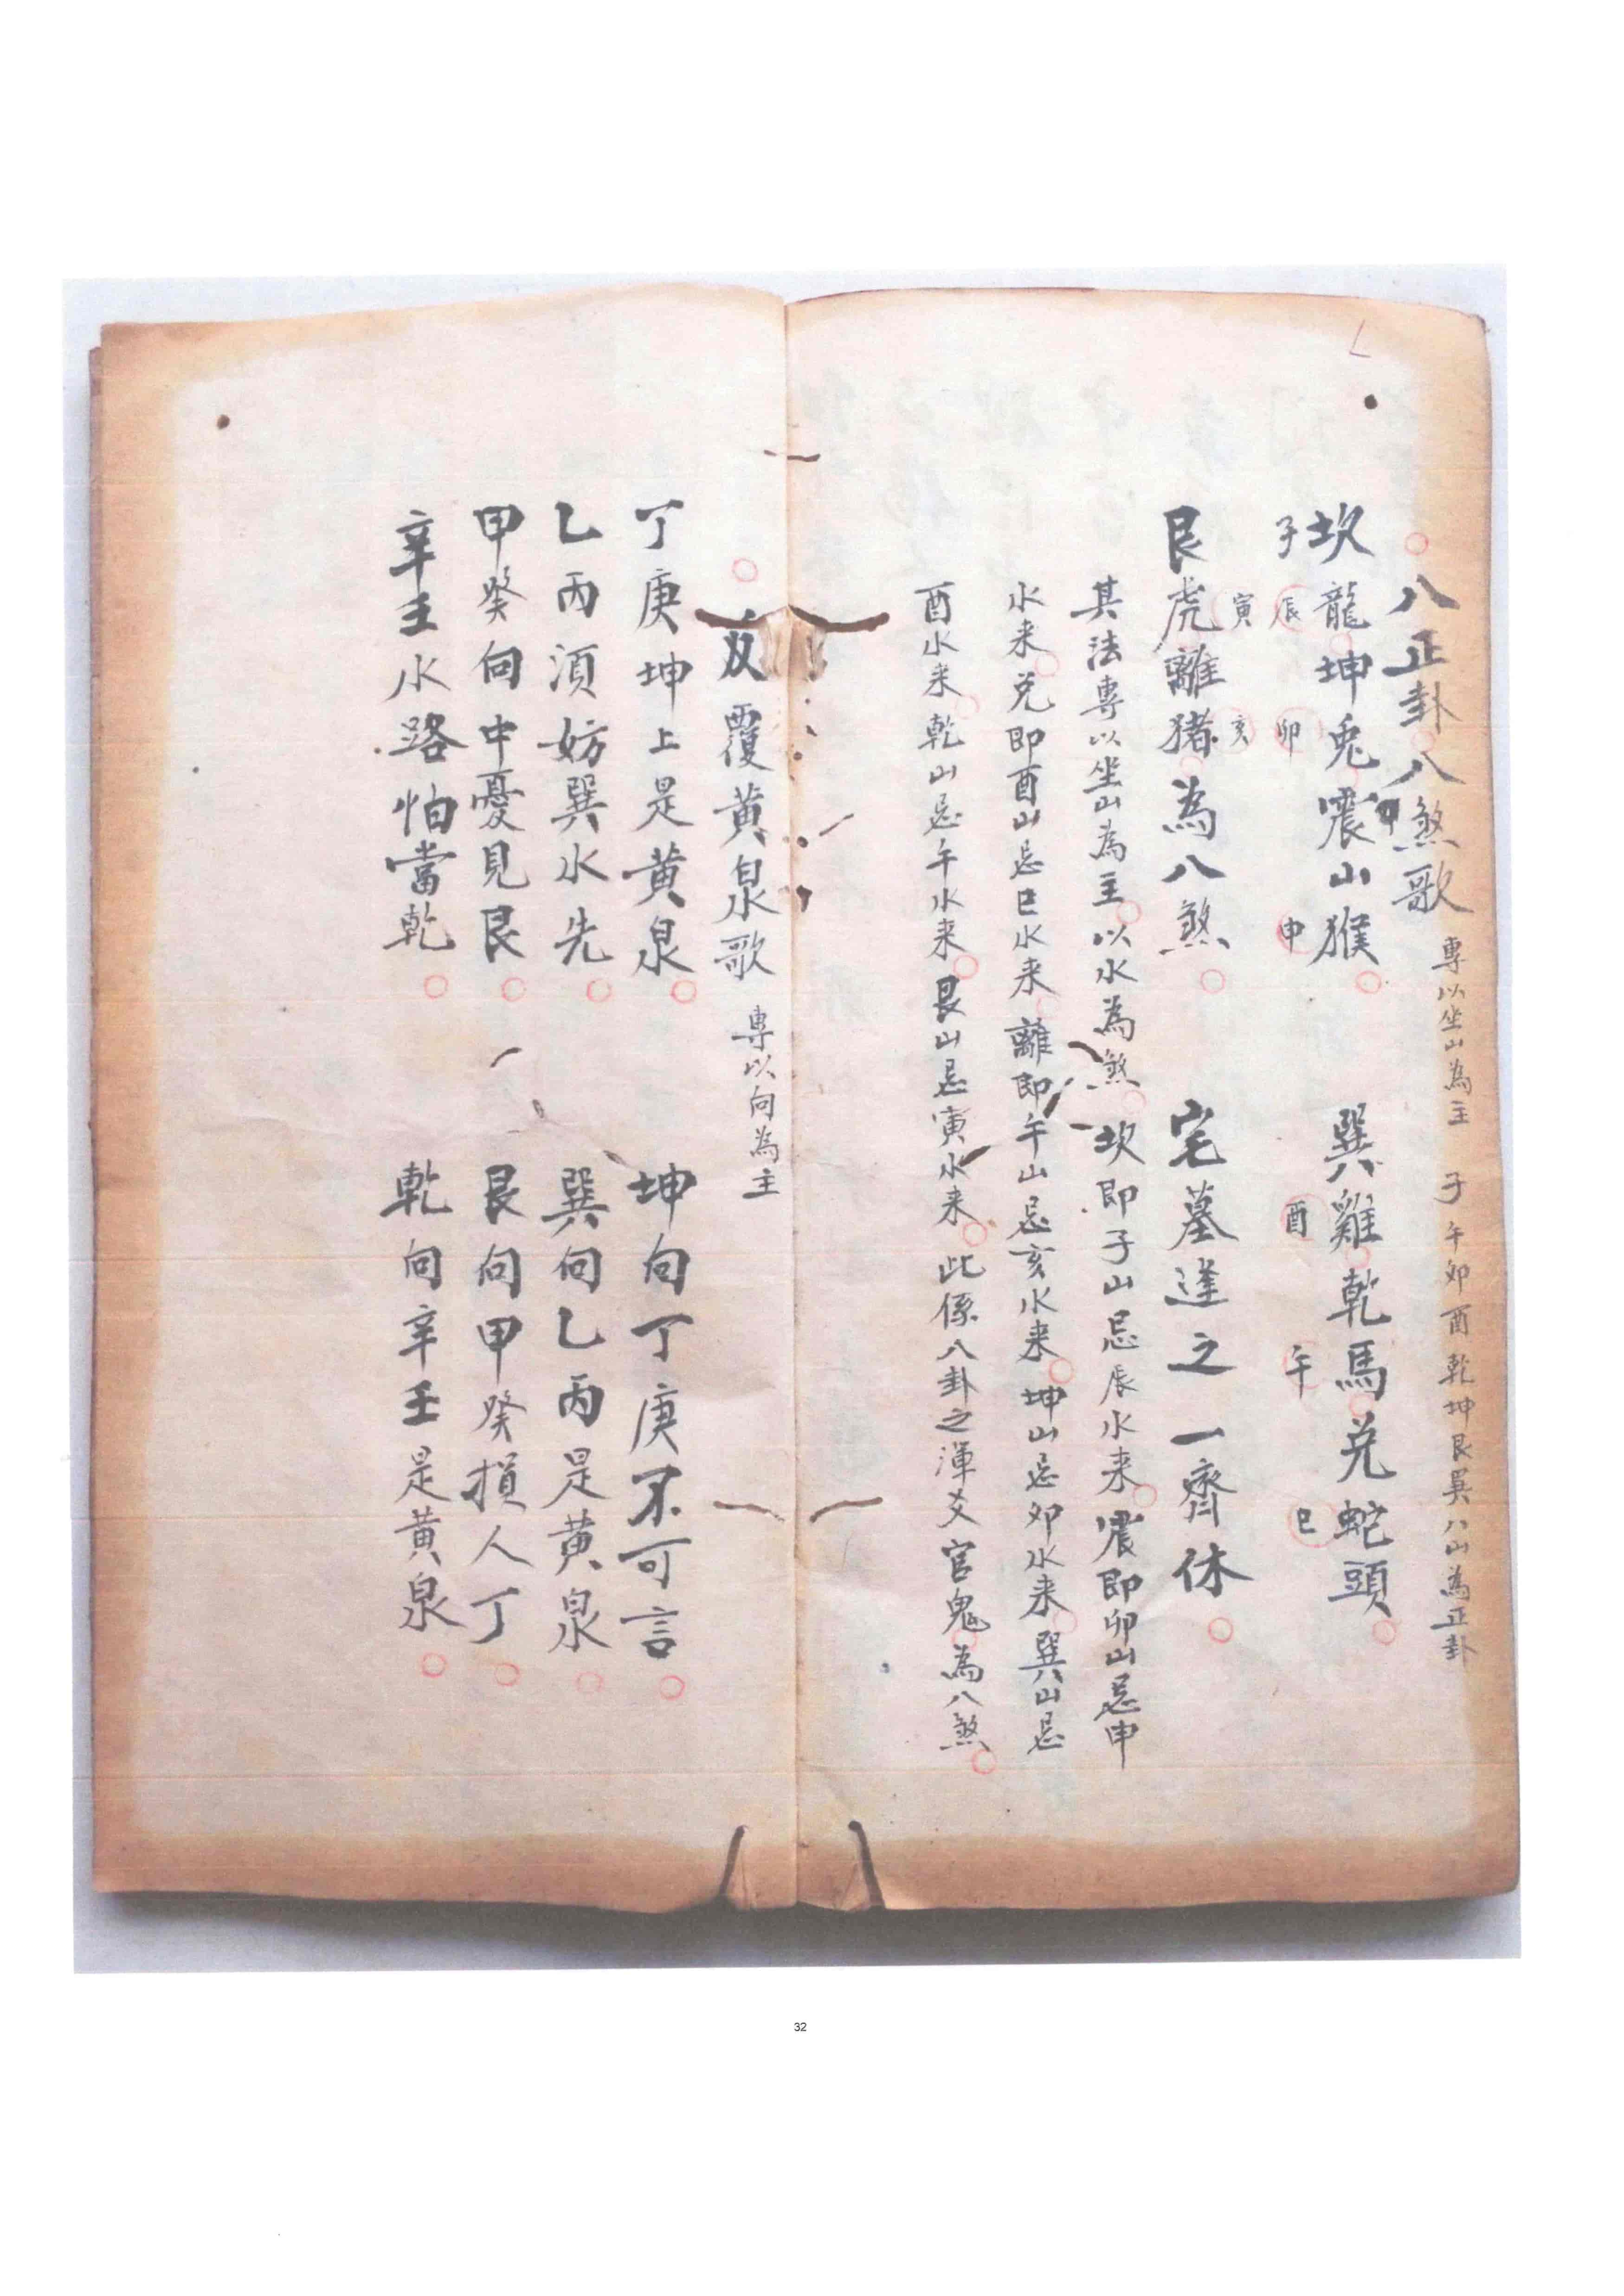 八正卦八煞歌 專以坐山為主 子午卯酉乾坤艮巽八山為正卦
坎龍坤兔震山猴 巽雞乾馬兌蛇頭
子 辰 卯 甲 申 酉 午 巳
寅 亥
艮虎離猪為八煞 宅墓逢之一齊休
其法專以坐山為主以水為煞 坎即子山忌辰水来震即卯山忌申
水来兌即酉山忌巳水来離即午山忌亥水来坤山忌卯水来巽山忌
酉水来乾山忌午水来艮山忌寅水来此係八卦之渾爻官鬼為八煞
反覆黄泉歌 專以向為主
丁庚坤上是黄泉 坤向丁庚不可言
乙丙須妨巽水先 巽向乙丙是黄泉
甲癸向中憂見艮 艮向甲癸損人丁
辛壬水路怕當乾 乾向辛壬是黄泉
32